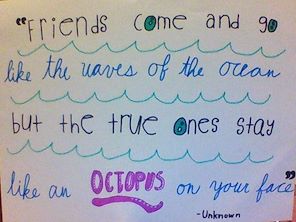 "Friends come and go
like the waves of the ocean
but the true ones stay
like an OCTOPUS on your face"
-Unknown